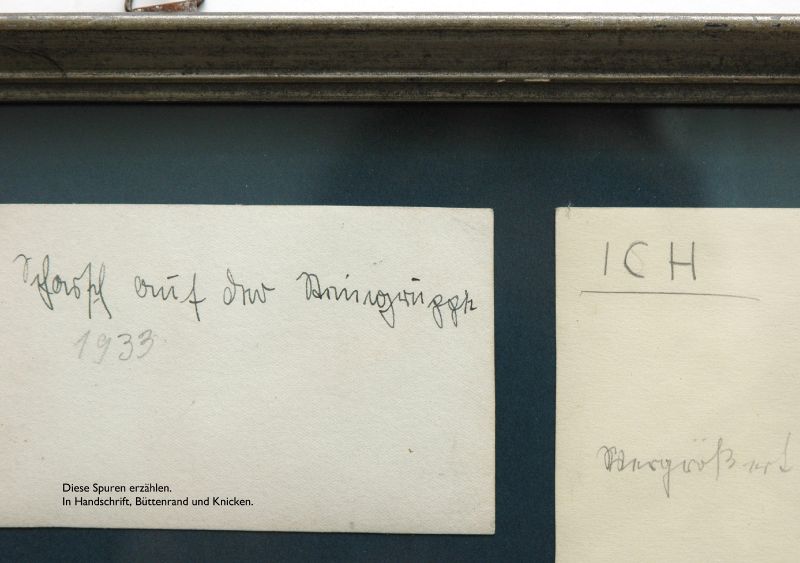 Schorsch auf der Steingruppe
1933
ICH
Vergrößert
Diese Spuren erzählen.
In Handschrift, Büttenrand und Knicken.